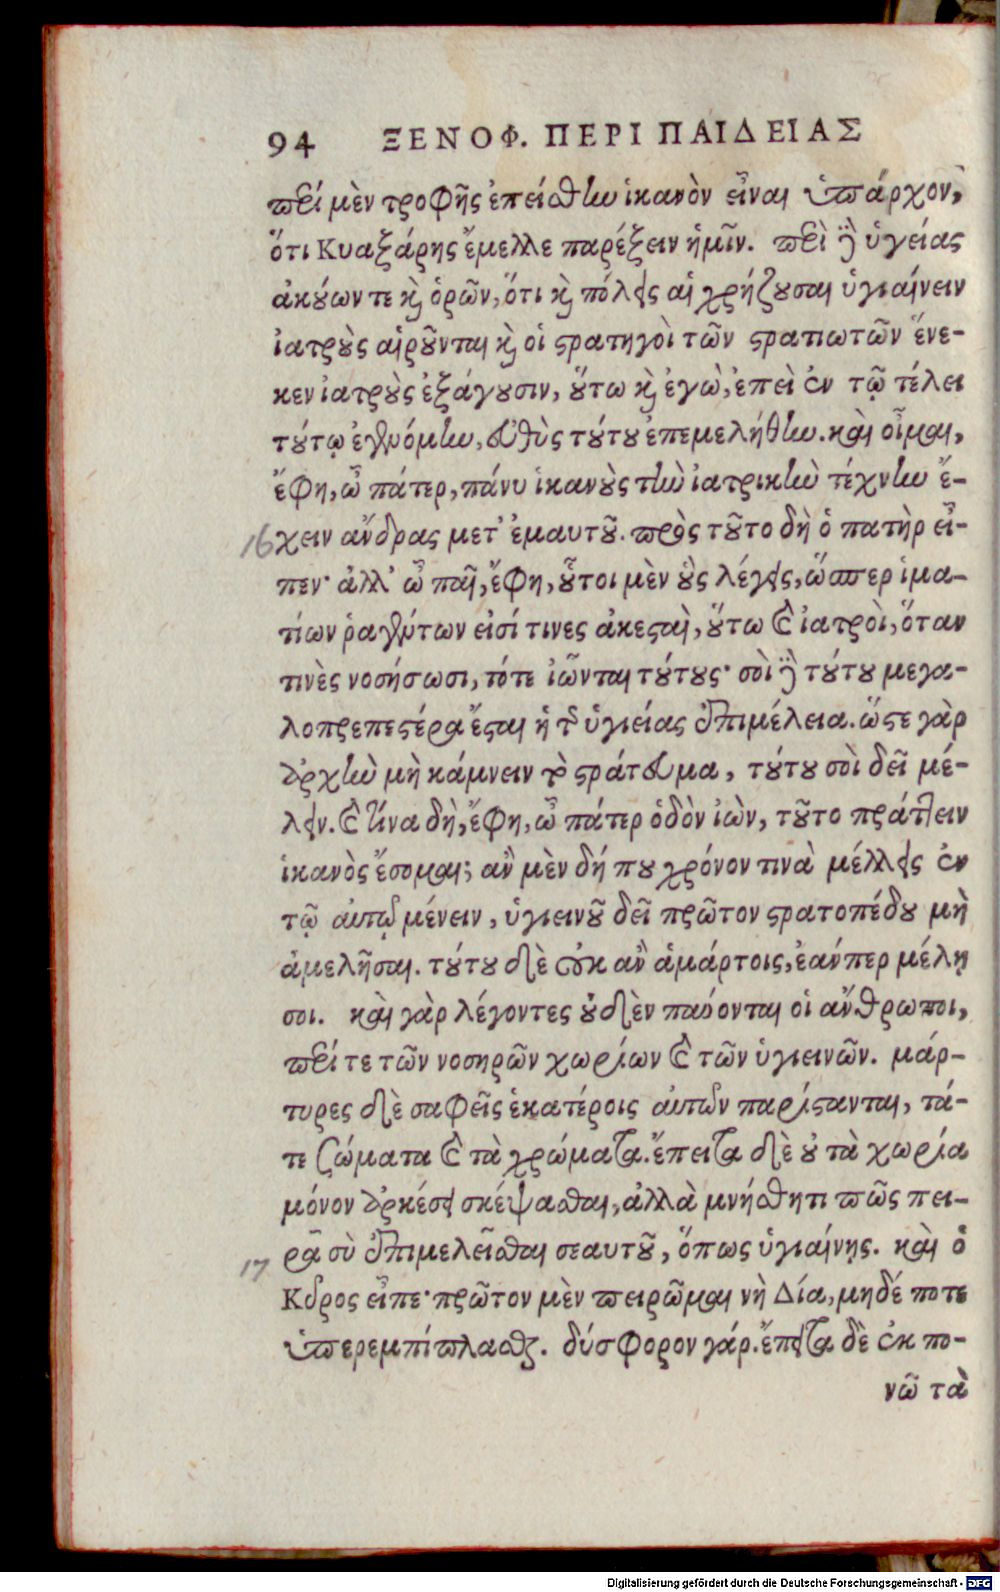 94 ΞΕΝΟΦ. ΠΕΡΙ ΠΑΙΔΕΙΑΣ
περί μὲν τροφῆς ἐπείσθην ἱκανὸν εἶναι ὑπάρχον,
ὅτι Κυαξάρης ἔμελλε παρέξειν ἡμῖν. περὶ δὲ ὑγείας
ἀκούων τε καὶ ὁρῶν, ὅτι καὶ πόλεις αἱ χρήζουσαι ὑγιαίνειν
ἰατροὺς αἱροῦνται καὶ οἱ στρατηγοὶ τῶν στρατιωτῶν ἕνε-
κεν ἰατροὺς ἐξάγουσιν, οὕτω καὶ ἐγὼ, ἐπεὶ ἐν τῷ τέλει
τούτῳ ἐγενόμην, εὐθὺς τούτου ἐπεμελήθην. καὶ οἶμαι,
ἔφη, ὦ πάτερ, πάνυ ἱκανοὺς τὴν ἰατρικὴν τέχνην ἔ-
16 χειν ἄνδρας μετ' ἐμαυτοῦ. πρὸς τοῦτο δὴ ὁ πατὴρ εἶ-
πεν· ἀλλ' ὦ παῖ, ἔφη, οὗτοι μὲν οὓς λέγεις, ὥσπερ ἱμα-
τίων ῥαγέντων εἰσί τινες ἀκεσταὶ, οὕτω καὶ ἰατροὶ, ὅταν
τινὲς νοσήσωσι, τότε ἰῶνται τούτους· σοὶ δὲ τούτου μεγα-
λοπρεπεστέρα ἔσται ἡ τῆς ὑγιείας ἐπιμέλεια. ὥστε γὰρ
ἀρχὴν μὴ κάμνειν τὸ στράτευμα, τούτου σοὶ δεῖ μέ-
λειν. καὶ τίνα δὴ, ἔφη, ὦ πάτερ ὁδὸν ἰὼν, τοῦτο πράττειν
ἱκανὸς ἔσομαι; ἂν μὲν δή που χρόνον τινὰ μέλλεις ἐν
τῷ αὐτῷ μένειν, ὑγιεινοῦ δεῖ πρῶτον στρατοπέδου μὴ
ἀμελῆσαι. τούτου δὲ οὐκ ἂν ἁμάρτοις, ἐάνπερ μέλῃ
σοι. καὶ γὰρ λέγοντες οὐδὲν παύονται οἱ ἄνθρωποι,
περί τε τῶν νοσηρῶν χωρίων καὶ τῶν ὑγιεινῶν. μάρ-
τυρες δὲ σαφεῖς ἑκατέροις αὐτῶν παρίστανται, τά-
τε ζώματα καὶ τὰ χρώματα. ἔπειτα δὲ οὐ τὰ χωρία
μόνον ἀρκέσει σκέψασθαι, ἀλλὰ μνήσθητι πῶς πει-
17 ρᾷ σὺ ἐπιμελεῖσθαι σεαυτοῦ, ὅπως ὑγιαίνῃς. καὶ ὁ
Κῦρος εἶπε· πρῶτον μὲν πειρῶμαι νὴ Δία, μηδέ ποτε
ὑπερεμπίπλασθαι. δύσφορον γάρ. ἔπειτα δὲ ἐκ πο-
νῶ τὰ
Digitalisierung gefördert durch die Deutsche Forschungsgemeinschaft - DFG